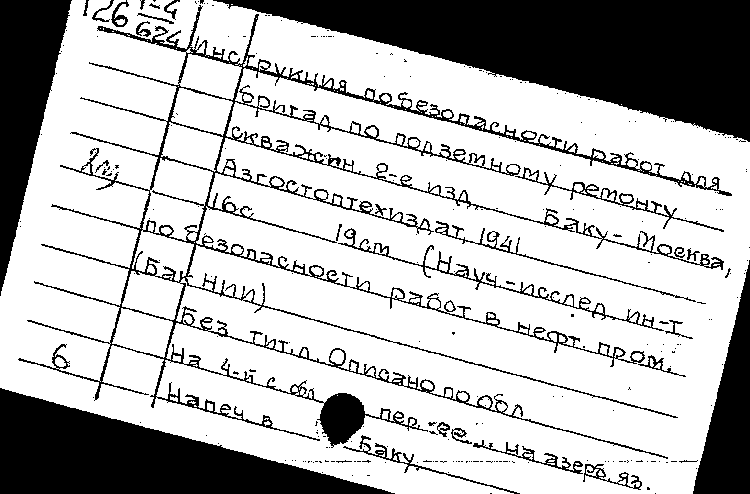 126 1-4
624
Инструкция по безопасности работ для
бригад по подземному ремонту
скважин. 2-е изд. Баку - Москва,
Азгостоптехиздат, 1941
16с 19см (Науч-исслед. ин-т
по безопасности работ в нефт. пром.
(Бак НИИ)
Без тит.л. Описано по обл
На 4-й с обл пер. на азерб. яз.
6
Напеч. в Баку.